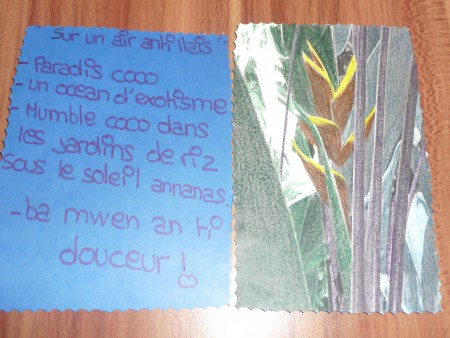 Sur un air antillais
- Paradis coco
- un océan d'exotisme
- Humble coco dans
les jardins de riz
sous le soleil annanas.
- ba mwen an ti
douceur !